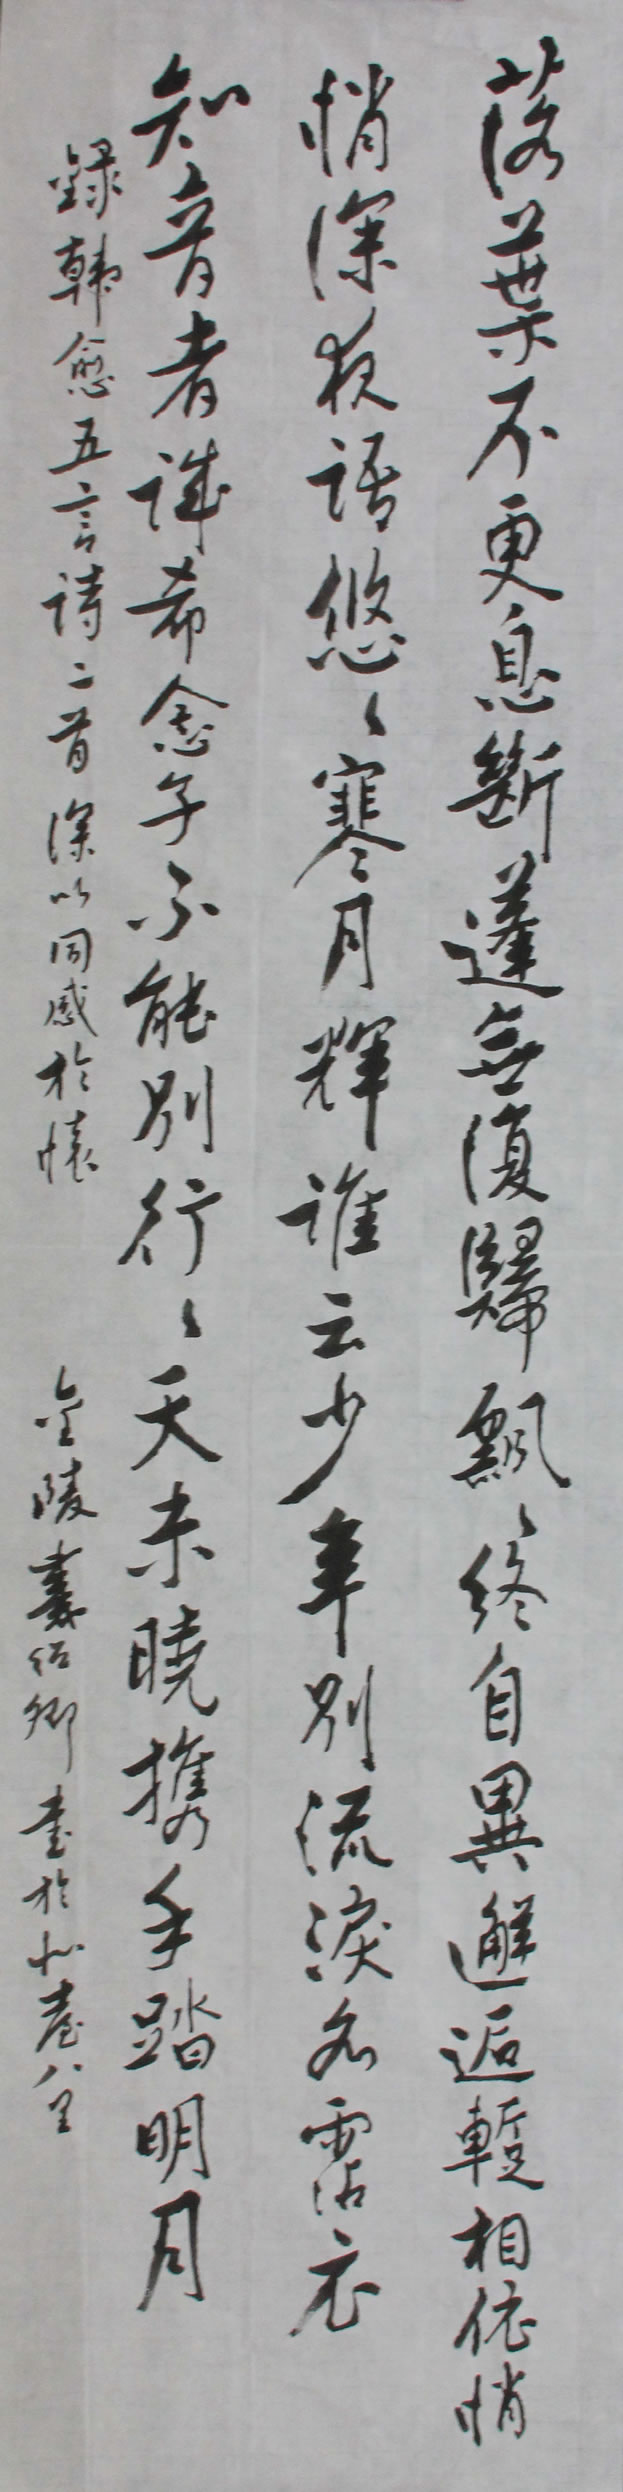 落葉不更息斷蓬無復歸飄〻終自異邂逅暫相依悄
悄深夜語悠〻寒月輝誰云少年別流淚各霑衣
知音者誠希念子不能別行〻天未曉攜手踏明月
錄韓愈五言詩二首深以同感於懷
金陵 卿書於北臺八里